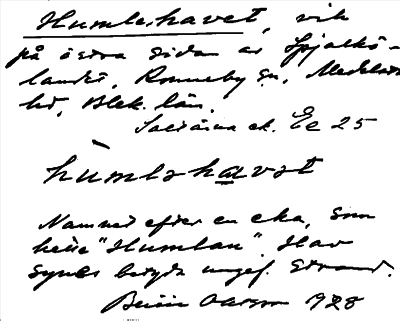 Humlehavet, vik
på östra sidan av Spjälkö-
landet, Ronneby sn, Medelsta
hd, Blek. län.
ek. Ec 25
humlshavət
Namned efter en eka, som
hette "Humlan". Hav
synes betyda ungef. strand.
Olsson 1928